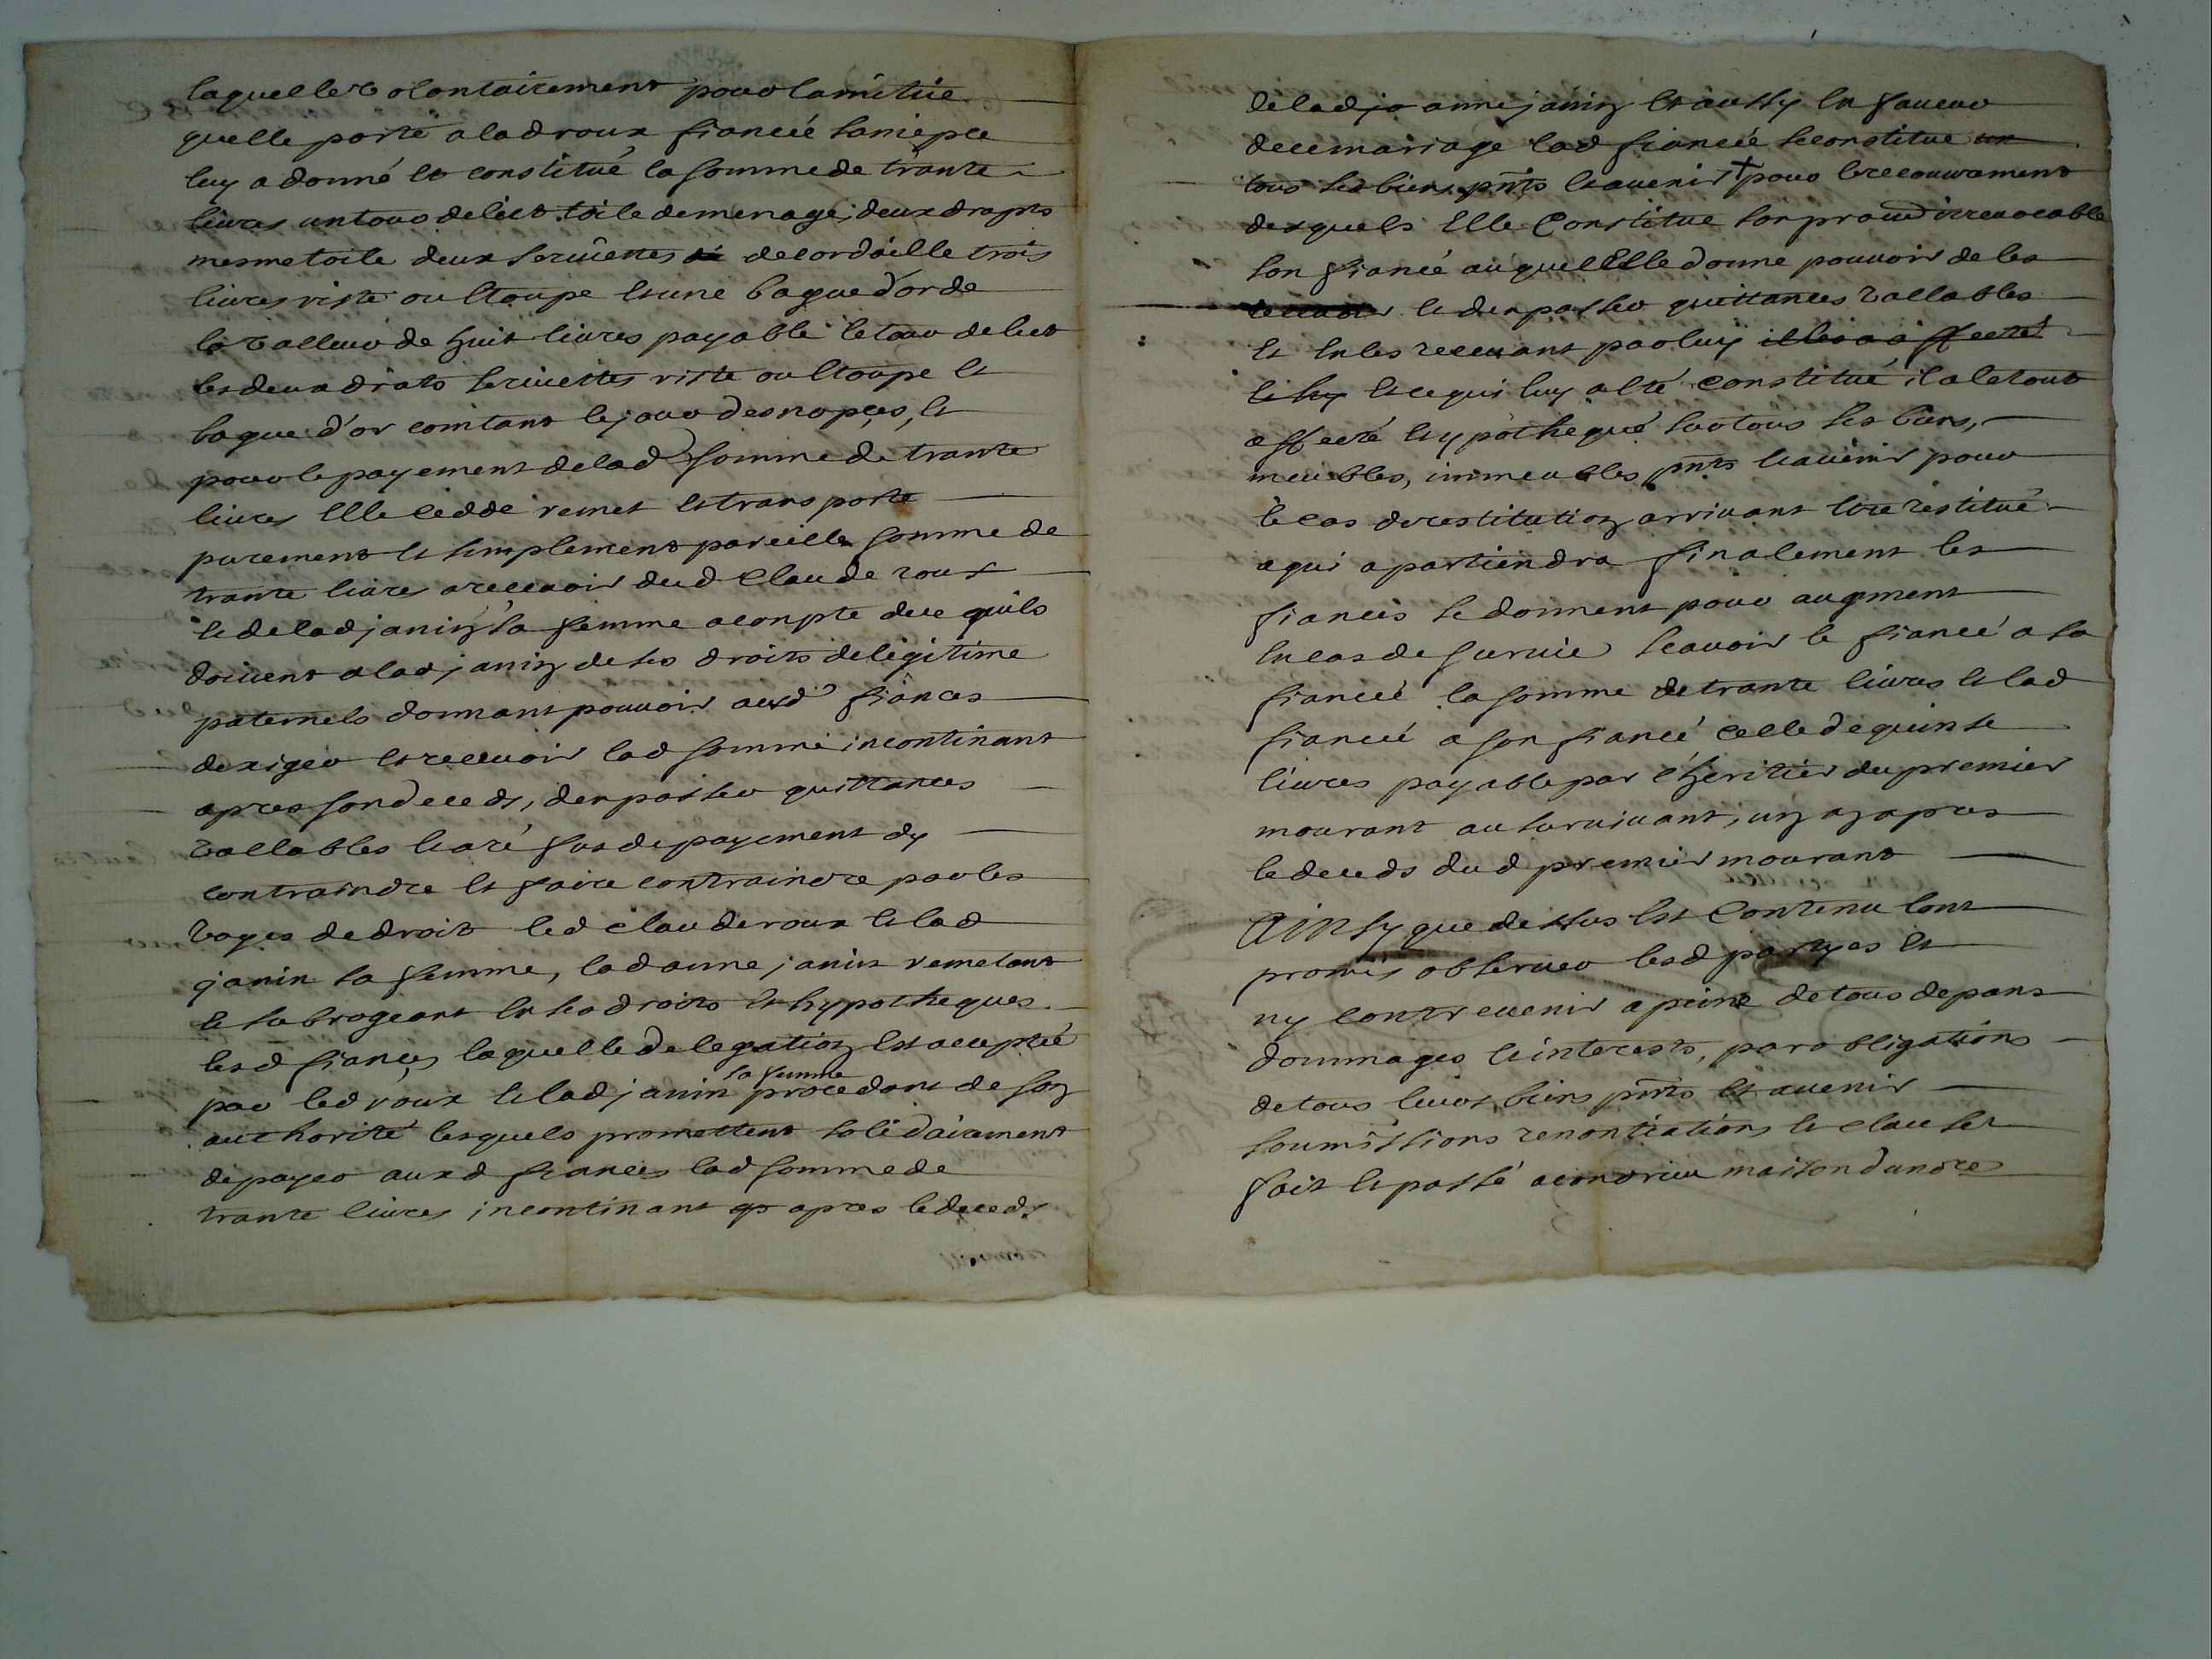 laquelle volontairement pour lamitié
quelle porte a lad roux fiancée sa niepce
luy a donné et constitué la somme de trante
livres un tour de lict toile de menage, deux drapts
mesme toile deux serviettes de cordaille trois
livres riste ou etoupe et une bague dor de
la valleur de huit livres payable le tour de lict
les deux drats serviettes riste ou etoupe et
bague d'or comtant le jour des nopces, et
pour le payement de lad somme de trante
livres elle cedde remet et transporte
purement et simplement pareille somme de
trante livres a recevoir dud Claude roux
et de lad janin sa femme acompte de ce quils
doivent a lad janin de ses droits de legitime
paternels donnant pouvoir ausd fiances
dexiger et recevoir lad somme incontinant
apres son deceds, den passer quittances
vallables et a refus de payement dy
contraindre et faire contraindre par les
voyes de droit led claude roux et lad
janin sa femme, lad anne janin remetant
et subrogeant en ses droits et hypotheques
lesd fiances laquelle delegation est acceptée
par led roux et lad janin sa femme procedant de son
authorité lesquels promettent solidairement
de payer auxd fiances lad somme de
trante livres incontinant apres le deceds
de lad janin et aussy en faveur
de ce mariage lad fiancée se constitue un
tous ses biens pnts et avenir + pour le recouvrament
desquels Elle Constitue son procur irrevocable
son fiancé auquel Elle donne pouvoir de les
et den passer quittances vallables
et en les recevant par luy il les a affecté
et ce qui luy a eté constitué il a le tout
affecté hypothequé sur tous ses biens,
meubles, immeubles pnts et avenir pour
le cas de restitution arrivant etre restitué
a qui apartiendra finalement les
fiancés se donnent pour augment
en cas de survie scavoir le fiancé a sa
fiancée la somme de trante livres et lad
fiancée a son fiancé celle de quinse
livres payable par l'heritier du premier
mourant au survivant, un an apres
le deceds dud premier mourant
Ainsy que dessus Est Contenu lont
promis observer lesd partyes et
ny contrevenir a peine de tous depans
dommages et interests, par obligations
de tous leurs biens pnts et avenir
soumissions renontiations et clauses
fait et passé a condrieu maison dandre